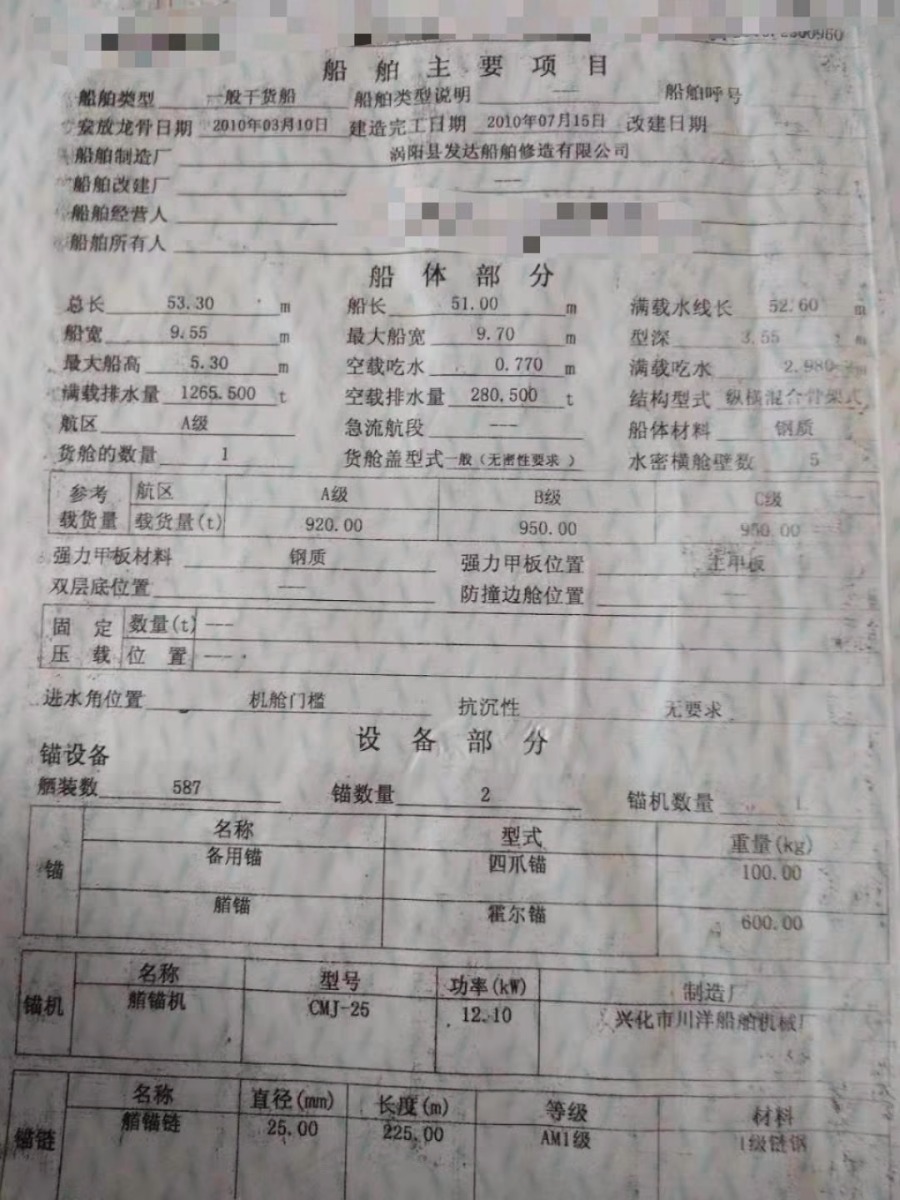 船舶主要项目
船舶类型 一般干货船 船舶类型说明 --- 船舶呼号
安放龙骨日期 2010年03月10日 建造完工日期 2010年07月15日 改建日期 ---
船舶制造厂 涡阳县发达船舶修造有限公司
船舶改建厂 ---
船舶经营人
船舶所有人
船体部分
总长 53.30 m 船长 51.00 m 满载水线长 52.60 m
船宽 9.55 m 最大船宽 9.70 m 型深 3.55 m
最大船高 5.30 m 空载吃水 0.770 m 满载吃水 2.980 m
满载排水量 1265.500 t 空载排水量 280.500 t 结构型式 纵横混合骨架式
航区 A级 急流航段 --- 船体材料 钢质
货舱的数量 1 货舱盖型式 一般(无密性要求) 水密横舱壁数 5
参考 航区 A级 B级 C级
载货量 载货量(t) 920.00 950.00 950.00
强力甲板材料 钢质 强力甲板位置 主甲板
双层底位置 --- 防撞边舱位置 ---
固定 数量(t) ---
压载 位置 ---
进水角位置 机舱门槛 抗沉性 无要求
设备部分
锚设备
舾装数 587 锚数量 2 锚机数量 1
名称 型式 重量(kg)
锚 备用锚 四爪锚 100.00
艏锚 霍尔锚 600.00
名称 型号 功率(kW) 制造厂
锚机 艏锚机 CMJ-25 12.10 兴化市川洋船舶机械厂
名称 直径(mm) 长度(m) 等级 材料
锚链 艏锚链 25.00 225.00 AM1级 1级链钢